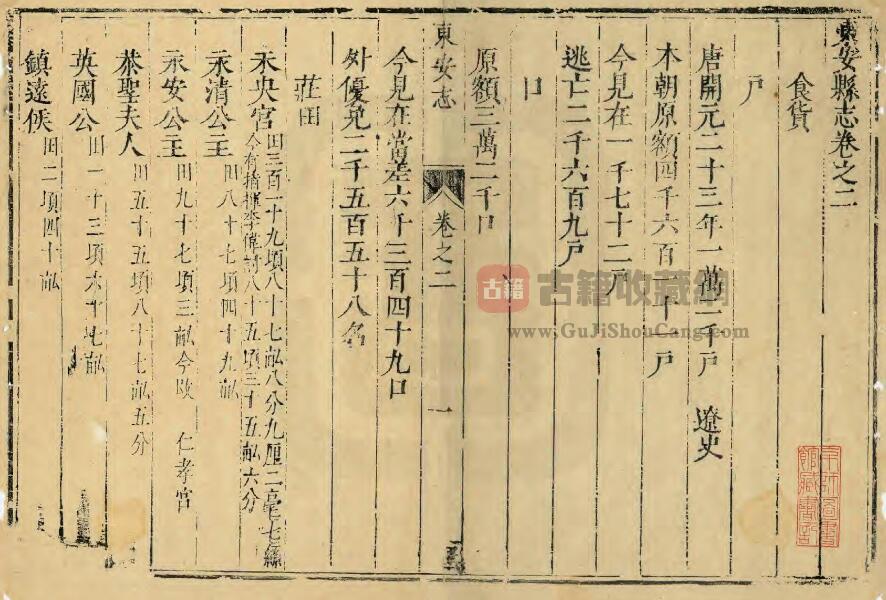 東安縣志卷之二
食貨
戶
唐開元二十三年一萬二千戶 遼史
本朝原額四千六百二十一戶
今見在一千七十二戶
逃亡二千六百九戶
口
原額三萬二千口
東安志 卷之二 一
今見在當差六千三百四十九口
外優免二千五百五十八名
莊田
未央宮 田三百一十九頃八十七畝八分九厘二毫七絲
今有指揮李偉討八十五頃三十五畝六分
永清公主 田八十七頃四十九畝
永安公主 田九十七頃三畝今改 仁孝宮
恭聖夫人 田五十五頃八十七畝五分
英國公 田一十三頃六十七畝
鎮遠侯 田二頃四十畝
京師圖書館藏書記
古籍 古籍收藏網
www.GuJiShouCang.com